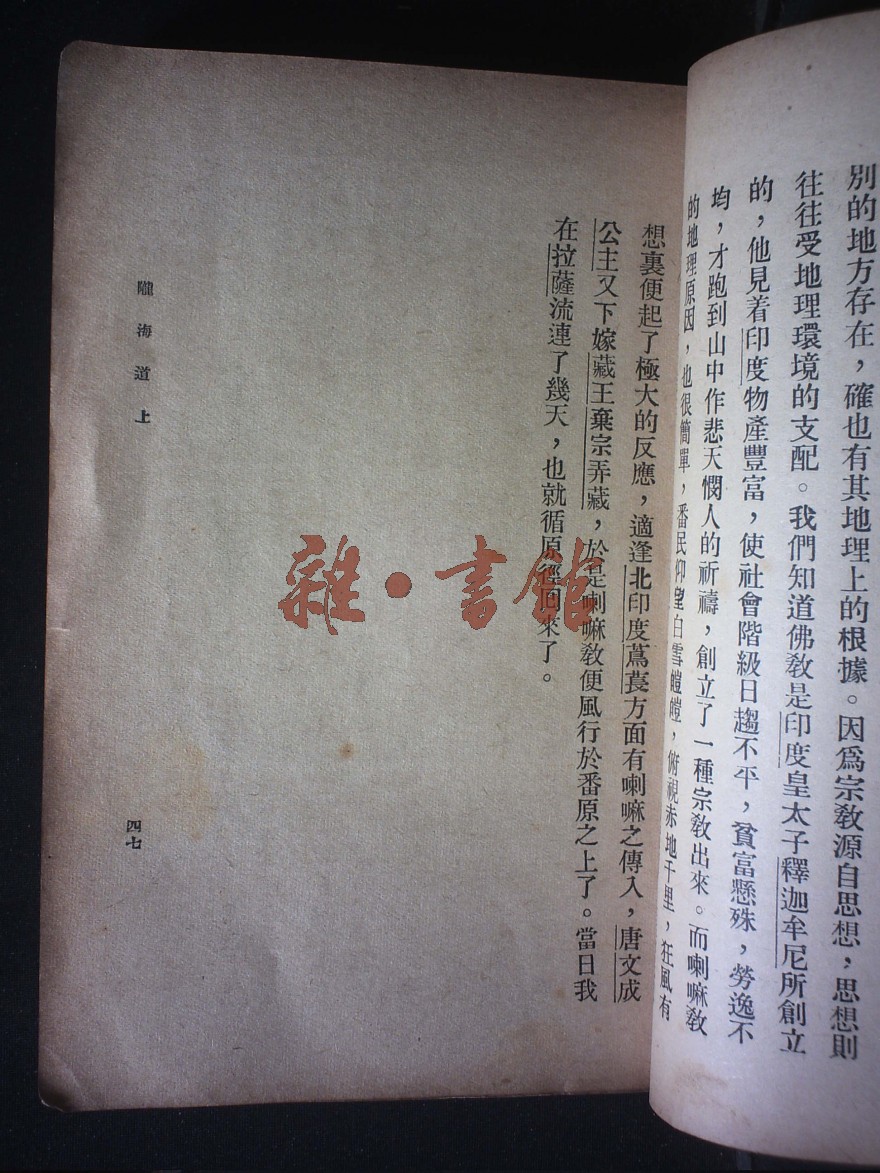 別的地方存在，確也有其地理上的根據。因爲宗教源自思想，思想則
往往受地理環境的支配。我們知道佛教是印度皇太子釋迦牟尼所創立
的，他見着印度物產豐富，使社會階級日趨不平，貧富懸殊，勞逸不
均，才跑到山中作悲天憫人的祈禱，創立了一種宗教出來。而喇嘛教
的地理原因，也很簡單，番民仰望白雪皚皚，俯視赤地千里，狂風有
想裏便起了極大的反應，適逢北印度蔦萇方面有喇嘛之傳入，唐文成
公主又下嫁藏王棄宗弄藏，於是喇嘛教便風行於番原之上了。當日我
在拉薩流連了幾天，也就循原徑回來了。
隴海道上
四七
雜·書館